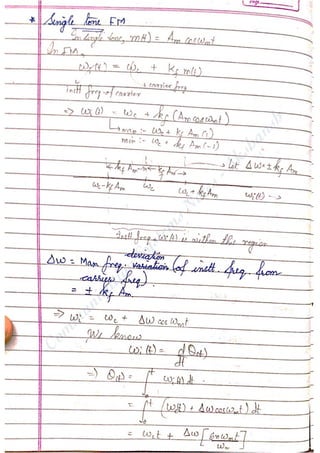 * Single tone FM
In Single tone, m(t) = Am cos ωmt
In FM,
ωi(t) = ωc + kf m(t)
instt freq. of carrier
carrier freq
⇒ ωi(t) = ωc + kf (Am cos ωmt)
max :- ωc + kf Am (1)
min :- ωc + kf Am (-1)
kf Am kf Am → Let Δω = ± kf Am
ωc - kf Am ωc ωc + kf Am ωi(t) →
instt freq. ωi(t) is within this region
deviation
Δω = Max freq. variation (of instt. freq. from
carrier freq)
= ± kf Am
⇒ ωi = ωc + Δω cos ωmt
We know
ωi(t) = d θ(t)
dt
⇒ θ(t) = ∫ ωi(t) dt
= ∫ (ωc(t) + Δω cos ωmt) dt
= ωc t + Δω [sin ωmt
ωm]